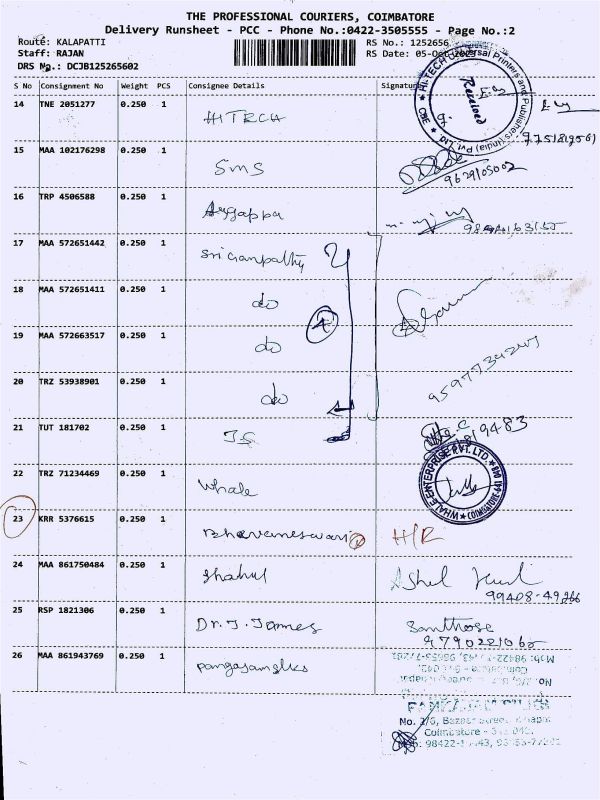 THE PROFESSIONAL COURIERS, COIMBATORE
Delivery Runsheet - PCC - Phone No.:0422-3505555 - Page No.:2
Route: KALAPATTI RS No.: 1252656
Staff: RAJAN RS Date: 05-Oct
DRS No.: DCJB125265602
S No Consignment No Weight PCS Consignee Details Signature
14 TNE 2051277 0.250 1 HITECH
HI-TECH Universal Printers and Publishers (India) Pvt. Ltd. CBE
Received
15 MAA 102176298 0.250 1 SMS
9629105002
16 TRP 4506588 0.250 1
17 MAA 572651442 0.250 1 Sri Ganpathy
18 MAA 572651411 0.250 1 do
4
19 MAA 572663517 0.250 1 do
20 TRZ 53938901 0.250 1 do
21 TUT 181702 0.250 1
22 TRZ 71234469 0.250 1 Whale
WHALE ENTERPRISE PVT. LTD. COIMBATORE
23 KRR 5376615 0.250 1 Bhavaneswari H/R
24 MAA 861750484 0.250 1 Shahul
99408-49266
25 RSP 1821306 0.250 1 Dr. J. James Santhose
9790221065
26 MAA 861943769 0.250 1
Coimbatore
98422- 43,